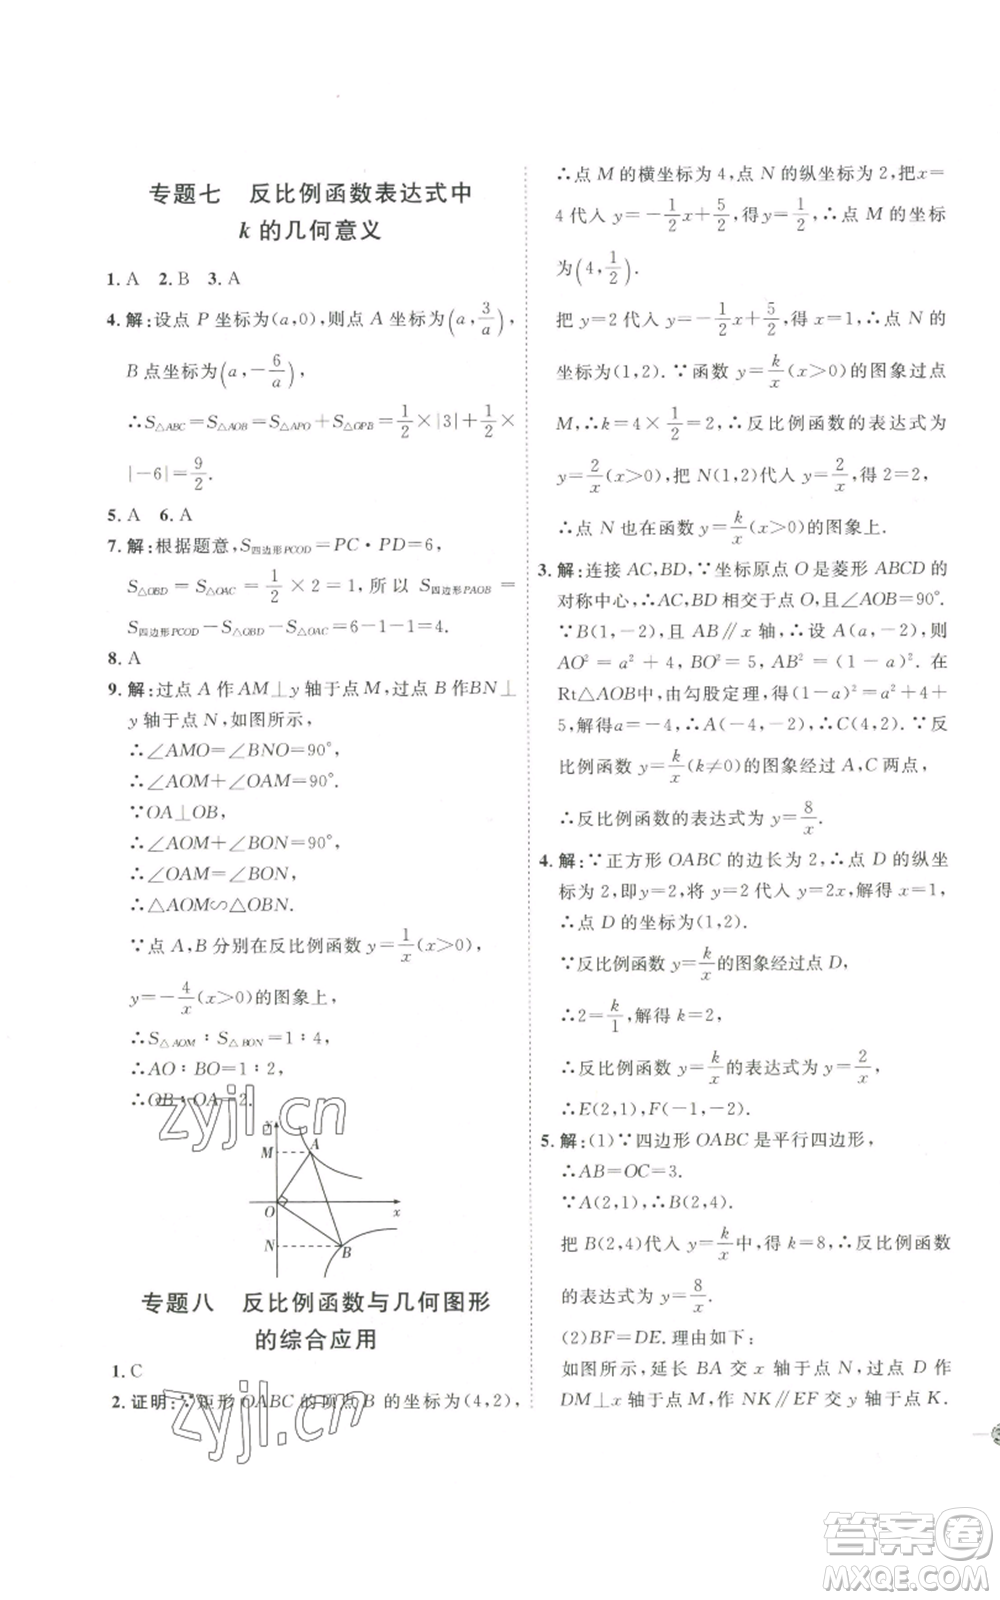 专题七 反比例函数表达式中
k 的几何意义
1. A 2. B 3. A
4. 解:设点 P 坐标为(a,0),则点 A 坐标为(a,3/a),
B 点坐标为(a,-6/a),
∴S△ABC=S△AOB=S△APO+S△OPB=1/2×|3|+1/2×
|-6|=9/2.
5. A 6. A
7. 解:根据题意,S四边形PCOD=PC·PD=6,
S△OBD=S△OAC=1/2×2=1,所以 S四边形PAOB=
S四边形PCOD-S△OBD-S△OAC=6-1-1=4.
8. A
9. 解:过点 A 作 AM⊥y 轴于点 M,过点 B 作BN⊥
y 轴于点 N,如图所示,
∴∠AMO=∠BNO=90°,
∴∠AOM+∠OAM=90°.
∵OA⊥OB,
∴∠AOM+∠BON=90°,
∴∠OAM=∠BON,
∴△AOM∽△OBN.
∵点 A,B 分别在反比例函数 y=1/x(x>0),
y=-4/x(x>0)的图象上,
∴S△AOM∶S△BON=1∶4,
∴AO∶BO=1∶2,
∴OB∶OA=2.
zyjl.cn
y
M
A
O
x
N
B
专题八 反比例函数与几何图形
的综合应用
1. C
2. 证明:∵矩形 OABC 的顶点 B 的坐标为(4,2),
zyjl.cn
∴点 M 的横坐标为 4,点 N 的纵坐标为 2,把 x=
4 代入 y=-1/2x+5/2,得 y=1/2,∴点 M 的坐标
为(4,1/2).
把 y=2 代入 y=-1/2x+5/2,得 x=1,∴点 N 的
坐标为(1,2).∵函数 y=k/x(x>0)的图象过点
M,∴k=4×1/2=2,∴反比例函数的表达式为
y=2/x(x>0),把 N(1,2)代入 y=2/x,得 2=2,
∴点 N 也在函数 y=k/x(x>0)的图象上.
3. 解:连接 AC,BD,∵坐标原点 O 是菱形 ABCD 的
对称中心,∴AC,BD 相交于点 O,且∠AOB=90°.
∵B(1,-2),且 AB∥x 轴,∴设 A(a,-2),则
AO²=a²+4,BO²=5,AB²=(1-a)². 在
Rt△AOB中,由勾股定理,得(1-a)²=a²+4+
5,解得a=-4,∴A(-4,-2),∴C(4,2).∵反
比例函数 y=k/x(k≠0)的图象经过 A,C 两点,
∴反比例函数的表达式为 y=8/x.
4. 解:∵正方形 OABC 的边长为 2,∴点 D 的纵坐
标为 2,即 y=2,将 y=2 代入 y=2x,解得 x=1,
∴点 D 的坐标为(1,2).
∵反比例函数 y=k/x的图象经过点 D,
∴2=k/1,解得 k=2,
∴反比例函数 y=k/x的表达式为 y=2/x,
∴E(2,1),F(-1,-2).
5. 解:(1)∵四边形 OABC 是平行四边形,
∴AB=OC=3.
∵A(2,1),∴B(2,4).
把 B(2,4)代入 y=k/x中,得 k=8,∴反比例函数
的表达式为 y=8/x.
(2)BF=DE.理由如下:
如图所示,延长 BA 交 x 轴于点 N,过点 D 作
DM⊥x 轴于点 M,作 NK∥EF 交 y 轴于点 K.
答案卷
MXQE.COM